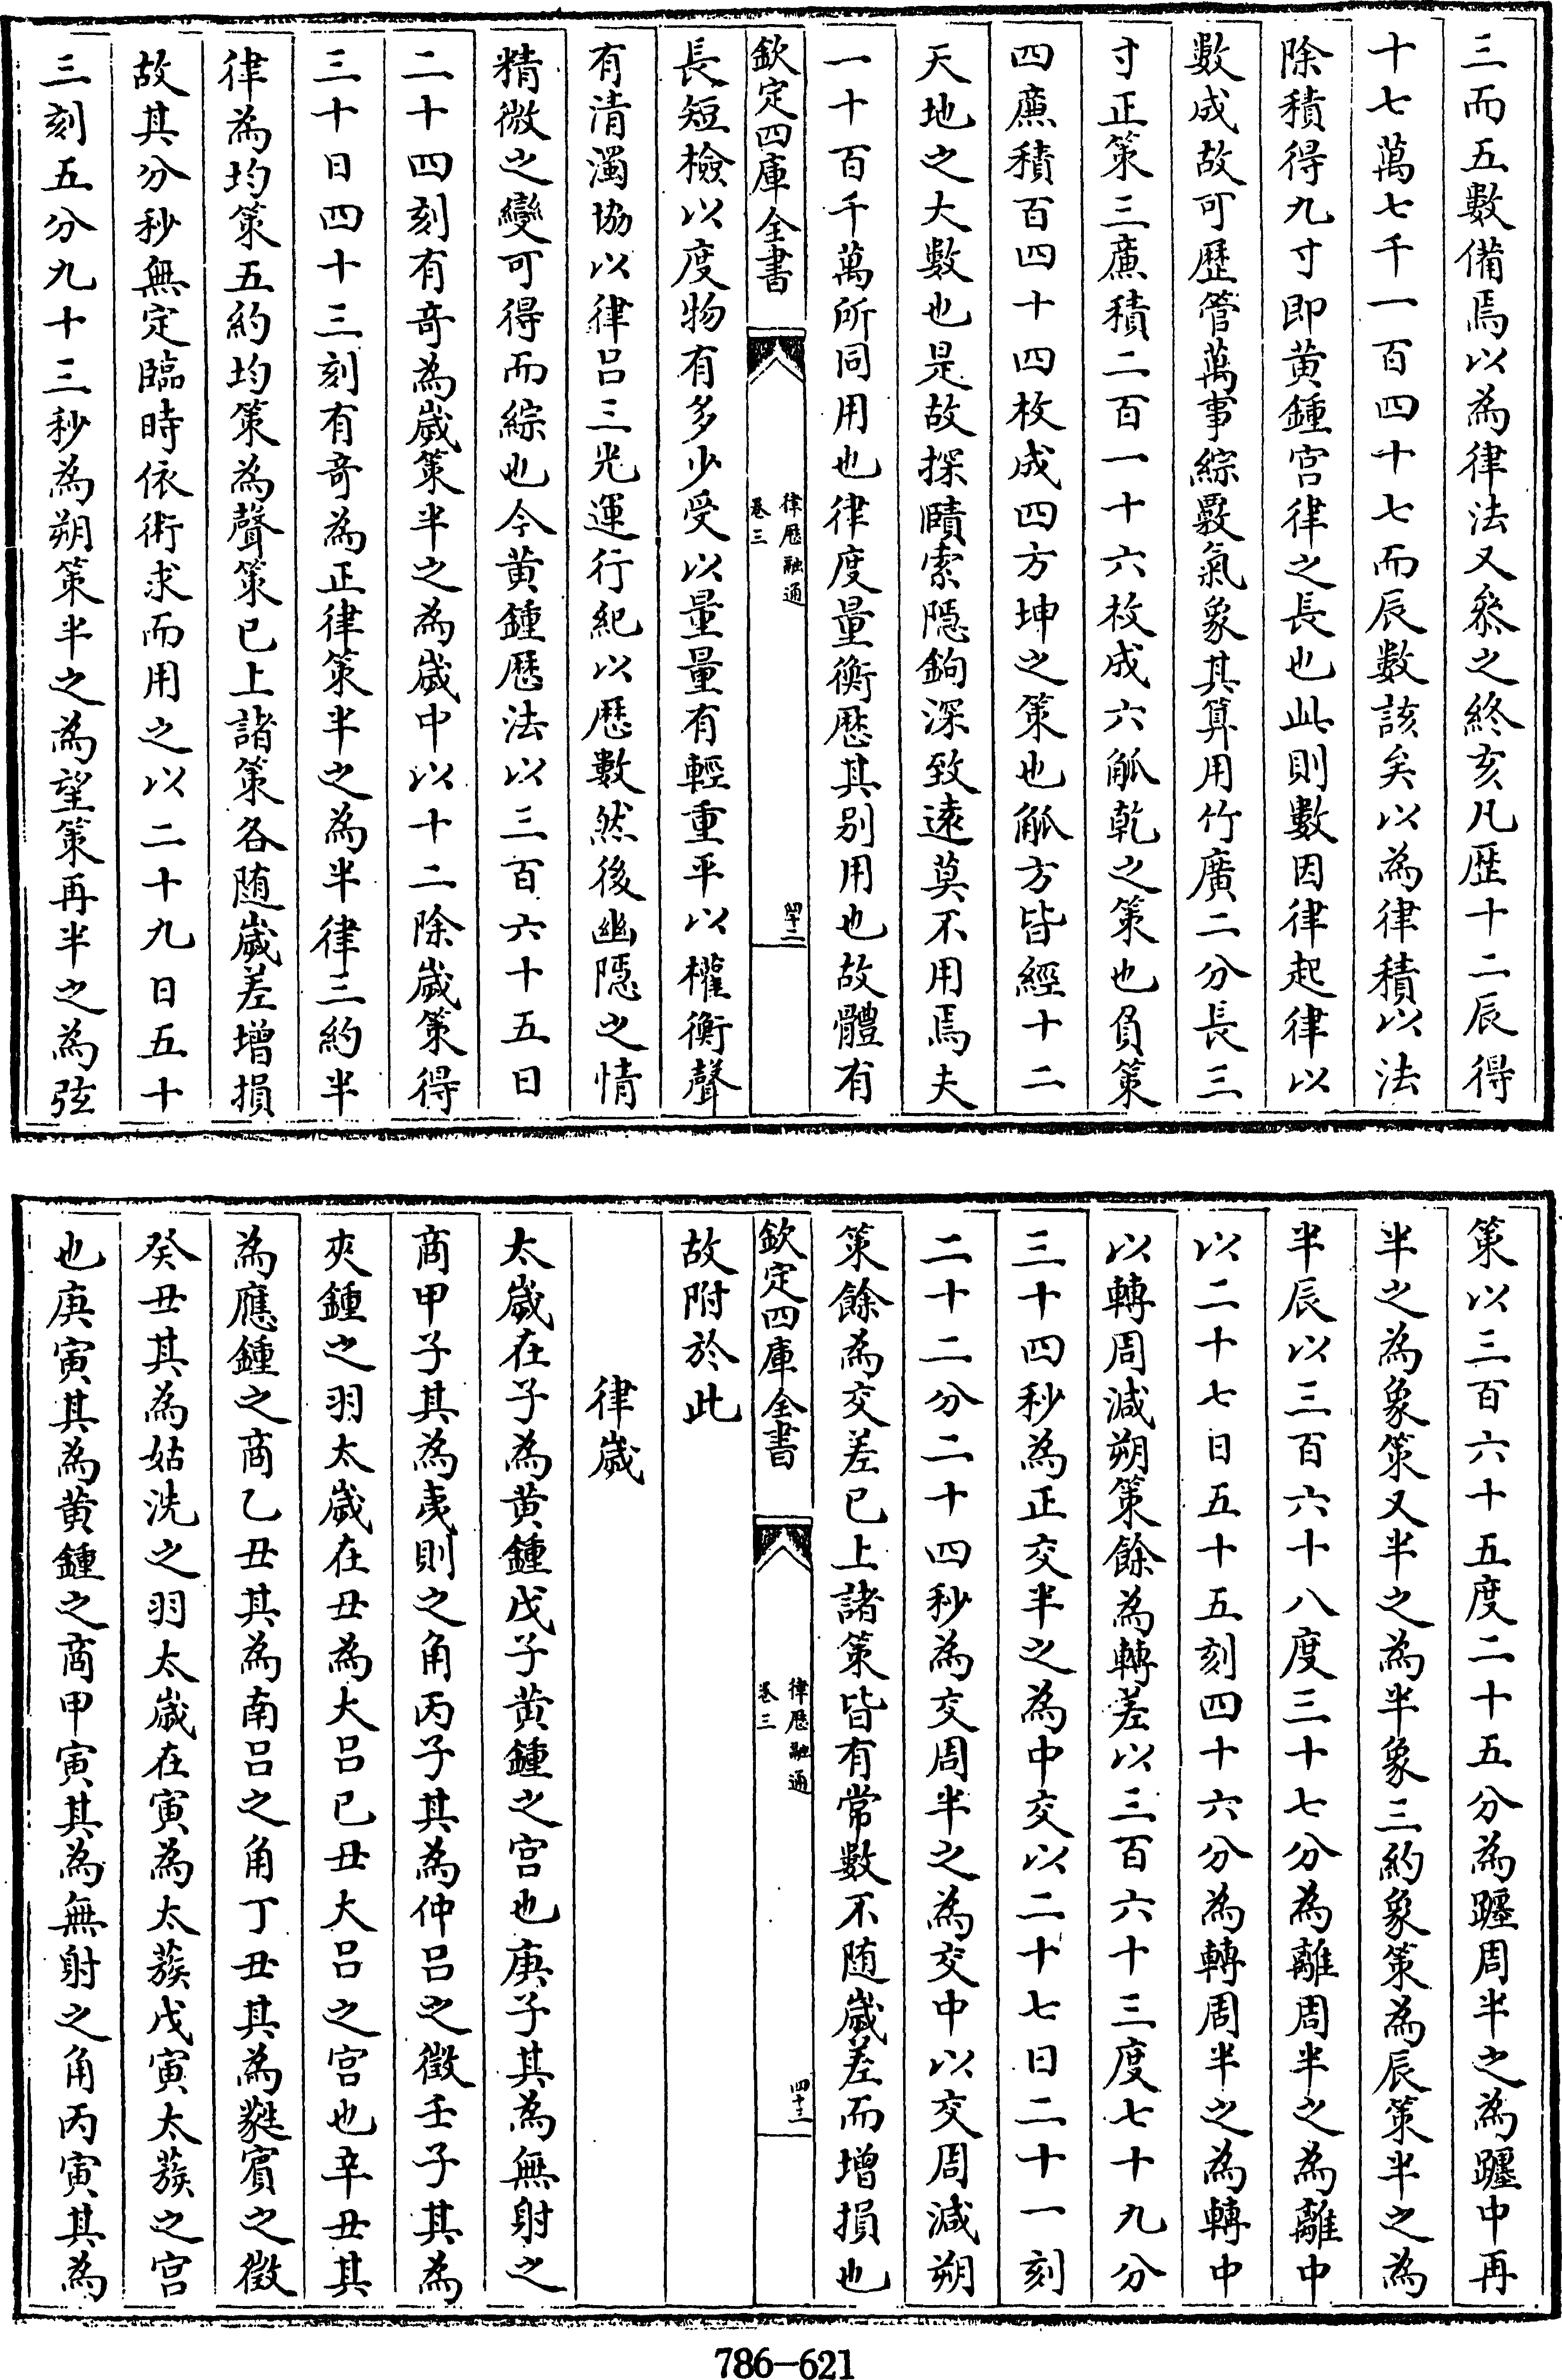 三而五數備焉以為律法又叅之終亥凡歴十二辰得
十七萬七千一百四十七而辰數該矣以為律積以法
除積得九寸即黄鍾宫律之長也此則數因律起律以
數成故可歴管萬事綜覈氣象其算用竹廣二分長三
寸正策三亷積二百一十六枚成六觚乾之策也負策
四亷積百四十四枚成四方坤之策也觚方皆經十二
天地之大數也是故探賾索隠鉤深致逺莫不用焉夫
一十百千萬所同用也律度量衡歴其别用也故體有
欽定四庫全書
律歴融通
卷三
四十二
長短檢以度物有多少受以量量有輕重平以權衡聲
有清濁協以律吕三光運行紀以歴數然後幽隠之情
精微之變可得而綜也今黄鍾歴法以三百六十五日
二十四刻有竒為嵗策半之為嵗中以十二除嵗策得
三十日四十三刻有竒為正律策半之為半律三約半
律為均策五約均策為聲策已上諸策各随嵗差增損
故其分秒無定臨時依術求而用之以二十九日五十
三刻五分九十三秒為朔策半之為望策再半之為弦
策以三百六十五度二十五分為躔周半之為躔中再
半之為象策又半之為半象三約象策為辰策半之為
半辰以三百六十八度三十七分為離周半之為離中
以二十七日五十五刻四十六分為轉周半之為轉中
以轉周減朔策餘為轉差以三百六十三度七十九分
三十四秒為正交半之為中交以二十七日二十一刻
二十二分二十四秒為交周半之為交中以交周減朔
策餘為交差已上諸策皆有常數不随嵗差而增損也
欽定四庫全書
律歴融通
卷三
四十三
故附於此
律嵗
太嵗在子為黄鍾戊子黄鍾之宫也庚子其為無射之
商甲子其為夷則之角丙子其為仲吕之徵壬子其為
夾鍾之羽太嵗在丑為大吕已丑大吕之宫也辛丑其
為應鍾之商乙丑其為南吕之角丁丑其為蕤賓之徵
癸丑其為姑洗之羽太嵗在寅為太蔟戊寅太蔟之宫
也庚寅其為黄鍾之商甲寅其為無射之角丙寅其為
786-621